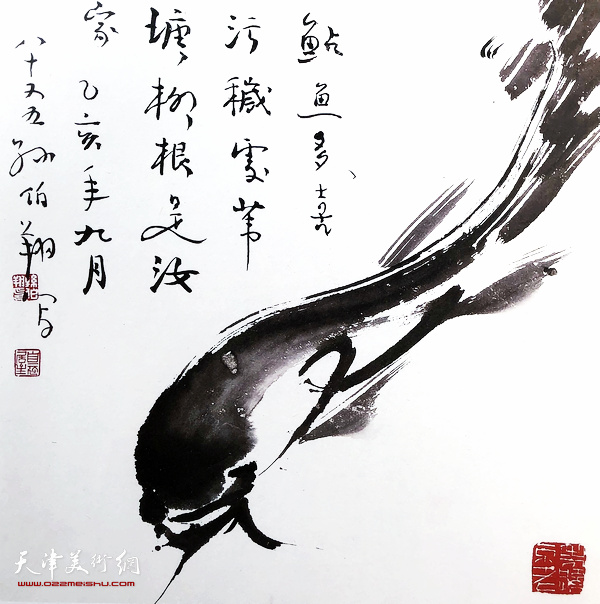 鲇鱼多喜
污秽处苇
塘柳根是汝
家 乙亥年九月
八十又五孙伯翔写
天津美術網
www.022meishu.com